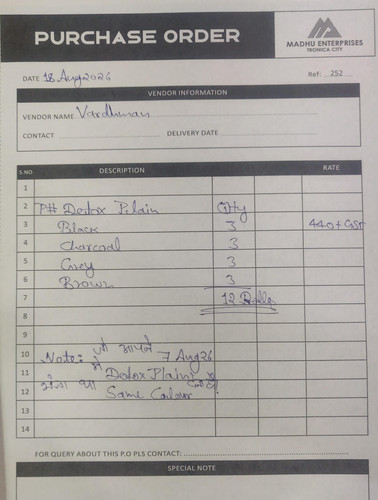 PURCHASE ORDER
MADHU ENTERPRISES
TRONICA CITY
DATE 18 Aug 2026
Ref: 252
VENDOR INFORMATION
VENDOR NAME Vardhman
CONTACT DELIVERY DATE
S.NO. DESCRIPTION RATE
1
2 P# Dotox Plain Qty
3 Black 3 440+GST
4 Charcoal 3
5 Grey 3
6 Brown 3
7 12 Rolls
8
9
10 Note: जो आपने 7 Aug 26
11 में Dotox Plain
12 था Same Colour
13
14
FOR QUERY ABOUT THIS P.O PLS CONTACT:
SPECIAL NOTE